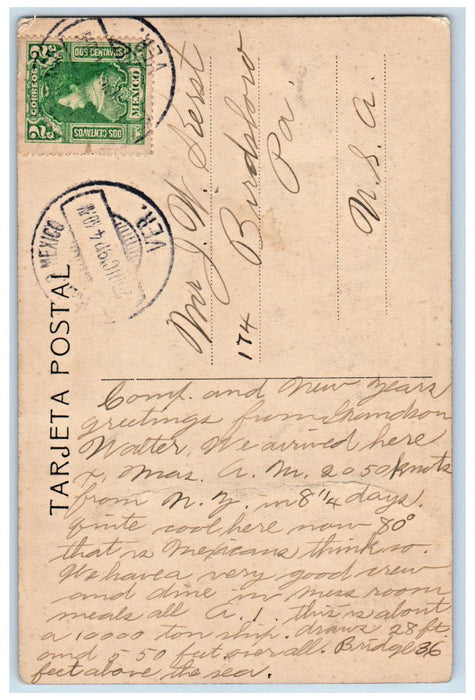 2¢ CORREOS MEXICO 2¢
DOS CENTAVOS
DOS CENTAVOS
VER.
MEXICO
VER.
TARJETA POSTAL
Mr J. W. Kerst
Birdsboro
174 Pa.
U.S.A.
Comp. and New Years
greetings from Grandson
Walter. We arrived here
X. Mas. A. M. 2050 knots
from N. Y. in 8 1/4 days.
Quite cool here now 80°
that is Mexicans think so.
We have a very good crew
and dine in mess room
meals all A. 1. this is about
a 10000 ton ship. draws 28 ft.
and 550 feet over all. Bridge 36
feet above the sea.